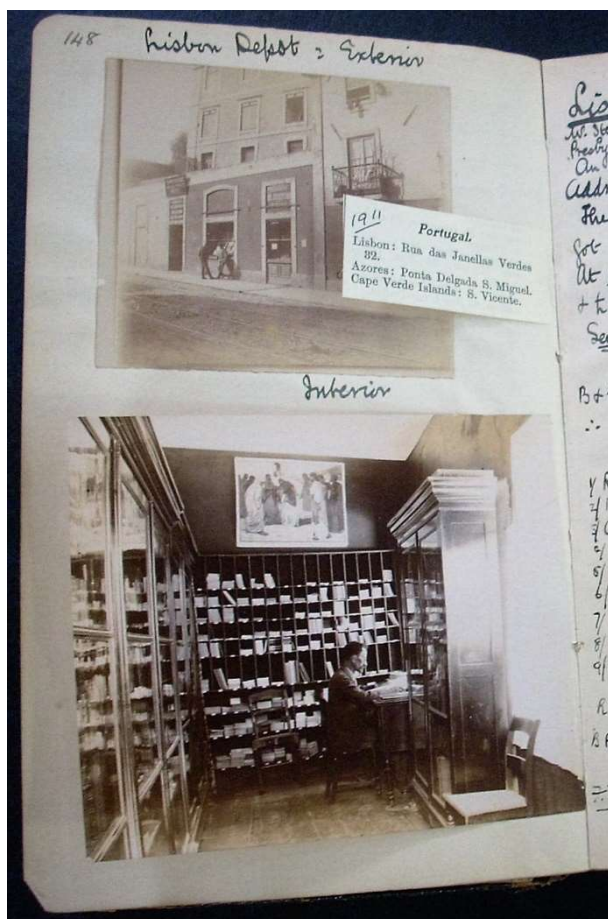 148
Lisbon Depot = Exterior
1911
Portugal.
Lisbon: Rua das Janellas Verdes
32.
Azores: Ponta Delgada S. Miguel.
Cape Verde Islands: S. Vicente.
Interior
Lis
Presby
An
Addr
The
got
At
+ th
B+
∴
2/
5/
6/
7/
8/
9/
R